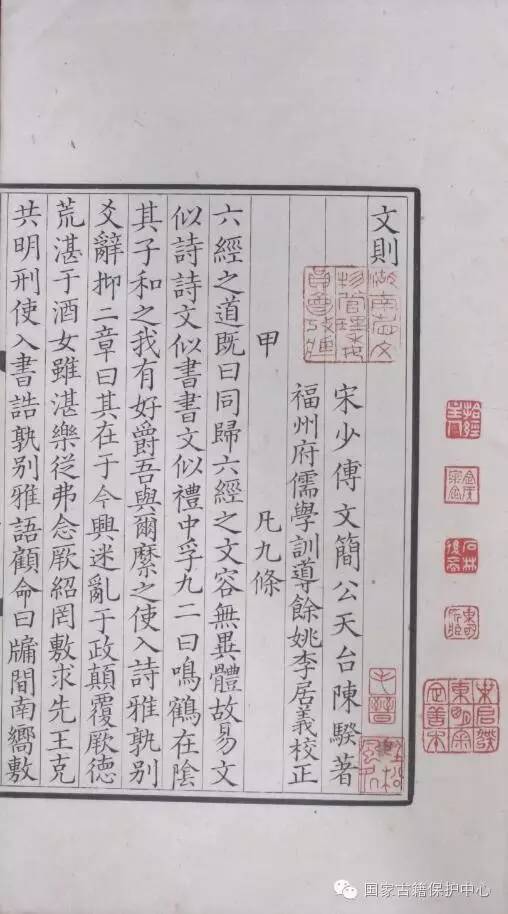 文則
宋少傅文簡公天台陳騤著
福州府儒學訓導餘姚李居義校正
甲 凡九條
六經之道既曰同歸六經之文容無異體故易文
似詩詩文似書書文似禮中孚九二曰鳴鶴在陰
其子和之我有好爵吾與爾縻之使入詩雅孰別
爻辭抑二章曰其在于今興迷亂于政顛覆厥德
荒湛于酒女雖湛樂從弗念厥紹罔敷求先王克
共明刑使入書誥孰別雅語顧命曰牖間南嚮敷
毛晉
國家古籍保護中心